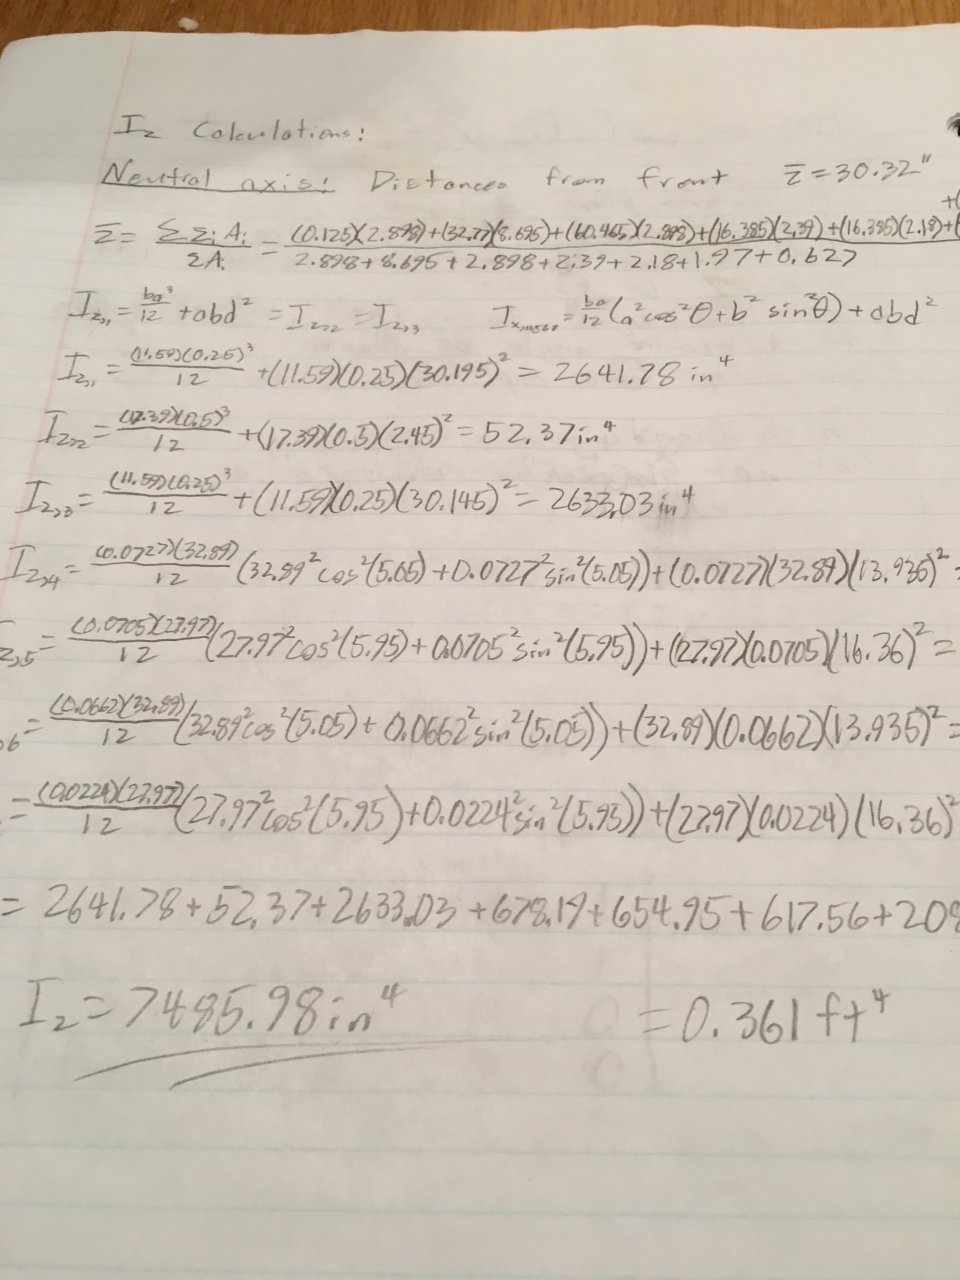 I₂ Calculations:
Neutral axis: Distances from front z̄=30.32"
+(
z̄ = Σ zᵢ Aᵢ / ΣAᵢ = (0.125)(2.898)+(32.77)(8.695)+(60.465)(2.898)+(16.385)(2.39)+(16.385)(2.18)+( / 2.898+8.695+2.898+2.39+2.18+1.97+0.627
I_z,1 = ba³/12 + abd² = I_z,2 = I_z,3 = ba/12 (a²cos²θ+b² sin²θ)+abd²
I_z,1 = (11.59)(0.25)³/12 +(11.59)(0.25)(30.195)² = 2641.78 in⁴
I_z,2 = (17.39)(0.5)³/12 +(17.39)(0.5)(2.45)² = 52.37in⁴
I_z,3 = (11.59)(0.25)³/12 + (11.59)(0.25)(30.145)² = 2633.03 in⁴
I_z,4 = (0.0727)(32.89)/12 (32.89² cos²(5.05) +0.0727² sin²(5.05))+(0.0727)(32.89)(13.935)² =
z,5 = (0.0705)(27.97)/12 (27.97²cos²(5.95)+0.0705² sin²(5.95))+(27.97)(0.0705)(16.36)² =
6 = (0.0662)(32.89)/12 (32.89²cos²(5.05)+0.0662² sin²(5.05))+(32.89)(0.0662)(13.935)² =
= (0.0224)(27.97)/12 (27.97²cos²(5.95)+0.0224² sin²(5.95))+(27.97)(0.0224)(16.36)²
= 2641.78+52.37+2633.03+678.19+654.95+617.56+208
I₂=7485.98in⁴ =0.361ft⁴